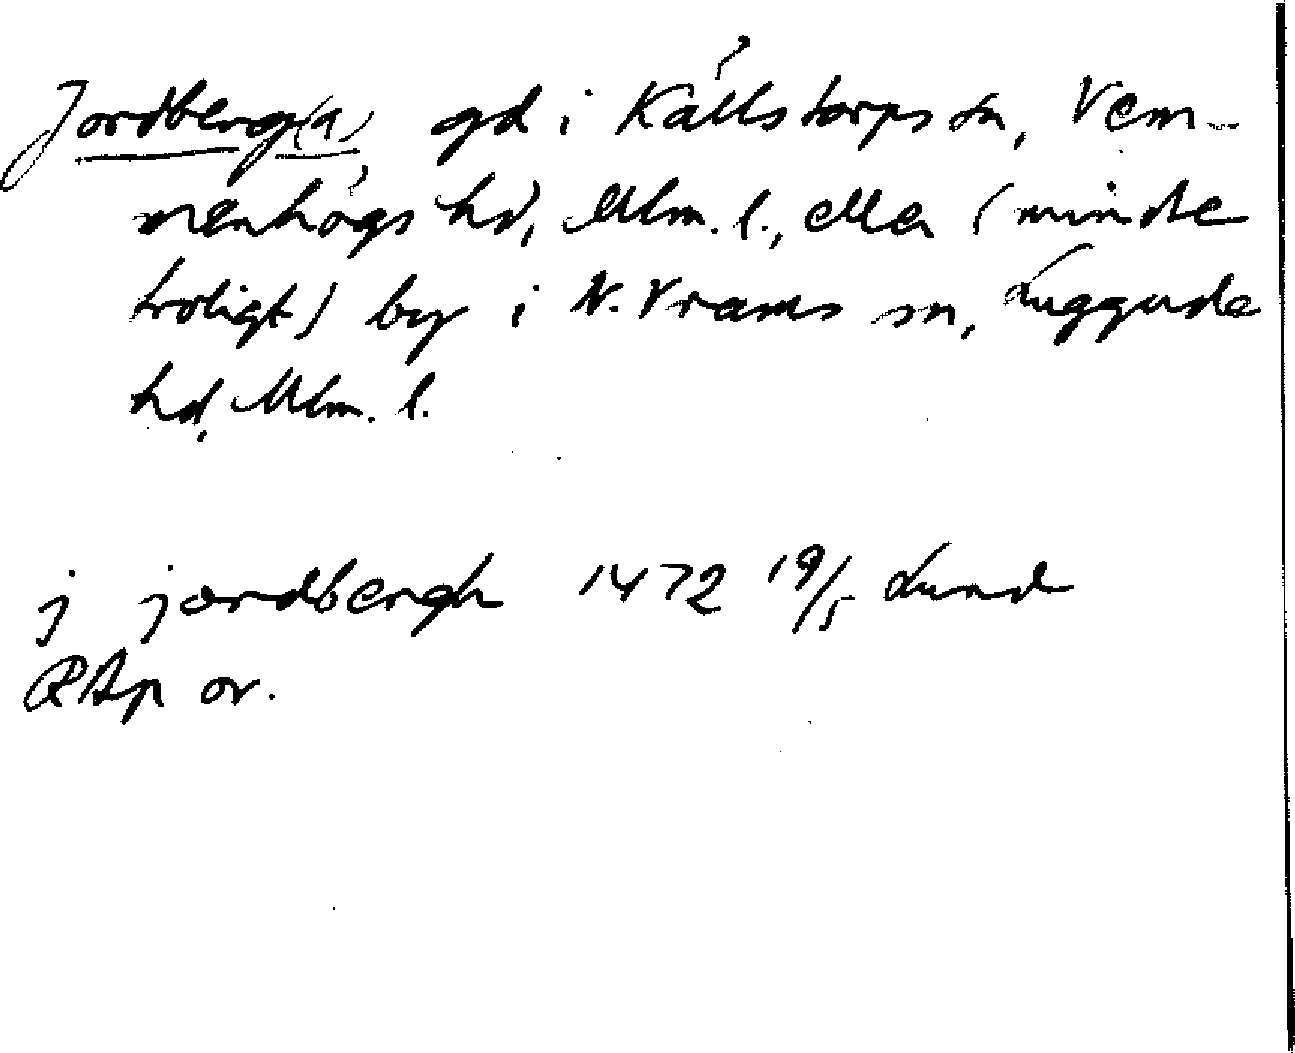 Jordberg(a), gd i Källstorps sn, Vem-
menhögs hd, Mlm. l., eller (mindre
troligt) by i N. Vrams sn, Luggude
hd, Mlm. l.
j jordbergh 1472 19/5 Lund
RAp or.